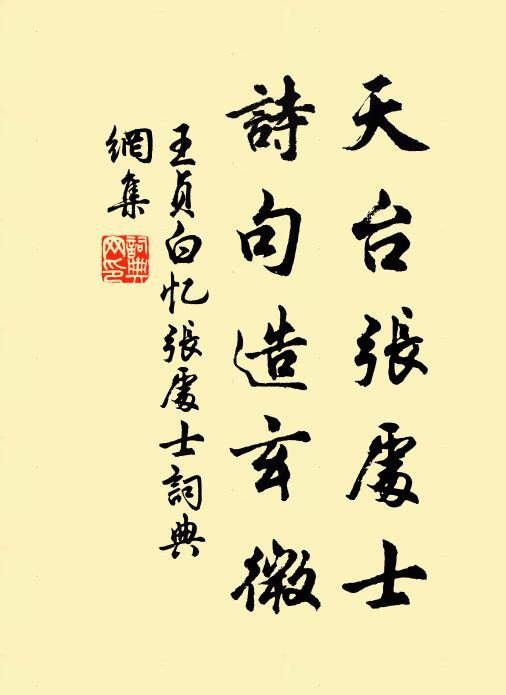 天台張處士
詩句造玄微
王貞白忆張處士詞典
網集
詞典
网印